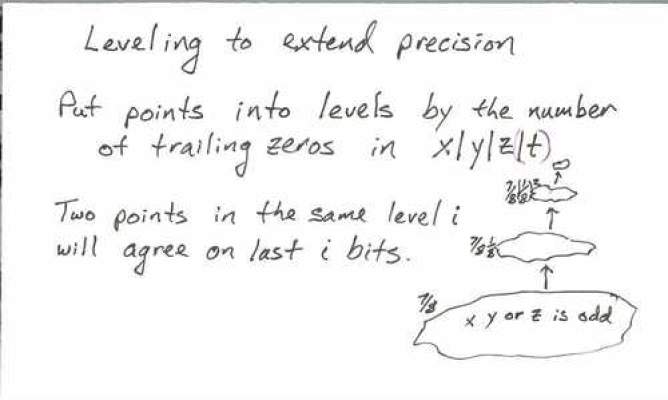 Leveling to extend precision
Put points into levels by the number
of trailing zeros in x|y|z(|t)
Two points in the same level i
will agree on last i bits.
7/8 1/8
7/8
x y or z is odd